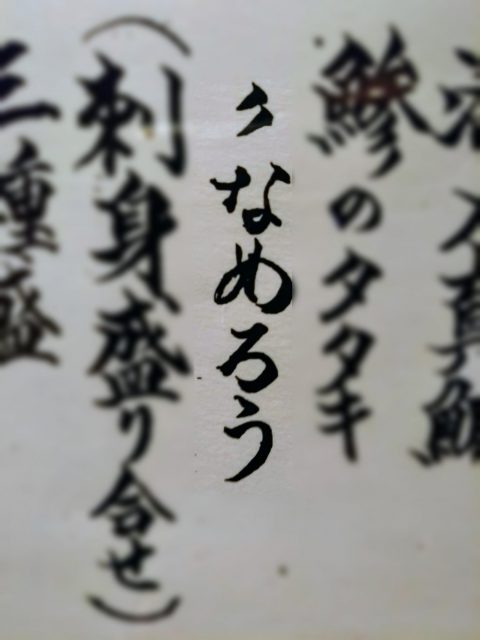 活〆真鯛
鯵のタタキ
〃なめろう
(刺身盛り合せ)
三種盛